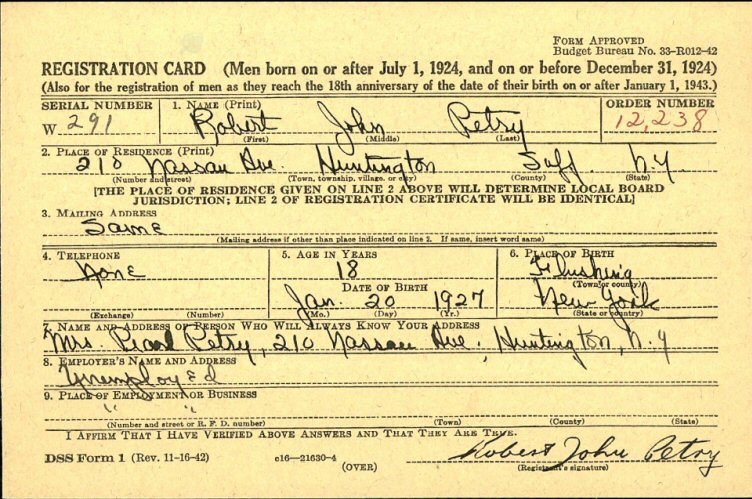 FORM APPROVED
Budget Bureau No. 33-R012-42
REGISTRATION CARD (Men born on or after July 1, 1924, and on or before December 31, 1924)
(Also for the registration of men as they reach the 18th anniversary of the date of their birth on or after January 1, 1943.)
SERIAL NUMBER 1. NAME (Print) ORDER NUMBER
W 291 Robert John Petry 12,238
(First) (Middle) (Last)
2. PLACE OF RESIDENCE (Print)
210 Nassau Ave. Huntington Suff. N.Y.
(Number and street) (Town, township, village, or city) (County) (State)
[THE PLACE OF RESIDENCE GIVEN ON LINE 2 ABOVE WILL DETERMINE LOCAL BOARD
JURISDICTION; LINE 2 OF REGISTRATION CERTIFICATE WILL BE IDENTICAL]
3. MAILING ADDRESS
Same
(Mailing address if other than place indicated on line 2. If same, insert word same)
4. TELEPHONE 5. AGE IN YEARS 6. PLACE OF BIRTH
None 18 Flushing
DATE OF BIRTH (Town or county)
Jan. 20 1927 New York
(Exchange) (Number) (Mo.) (Day) (Yr.) (State or country)
7. NAME AND ADDRESS OF PERSON WHO WILL ALWAYS KNOW YOUR ADDRESS
Mrs. Pearl Petry, 210 Nassau Ave, Huntington, N.Y
8. EMPLOYER'S NAME AND ADDRESS
Unemployed
9. PLACE OF EMPLOYMENT OR BUSINESS
" "
(Number and street or R. F. D. number) (Town) (County) (State)
I AFFIRM THAT I HAVE VERIFIED ABOVE ANSWERS AND THAT THEY ARE TRUE.
DSS Form 1 (Rev. 11-16-42) c16—21630-4 Robert John Petry
(OVER) (Registrant's signature)